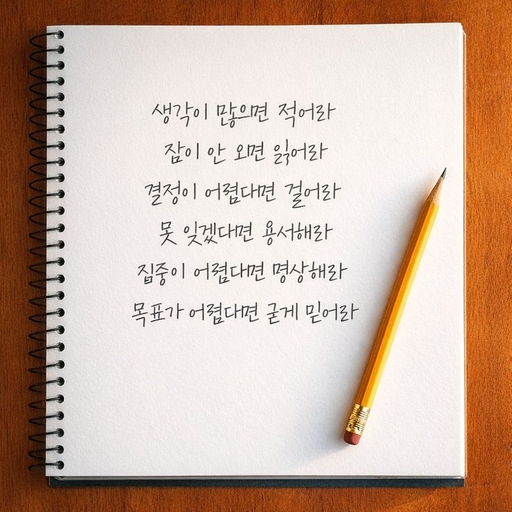 생각이 많으면 적어라
잠이 안 오면 읽어라
결정이 어렵다면 걸어라
못 잊겠다면 용서해라
집중이 어렵다면 명상해라
목표가 어렵다면 굳게 믿어라